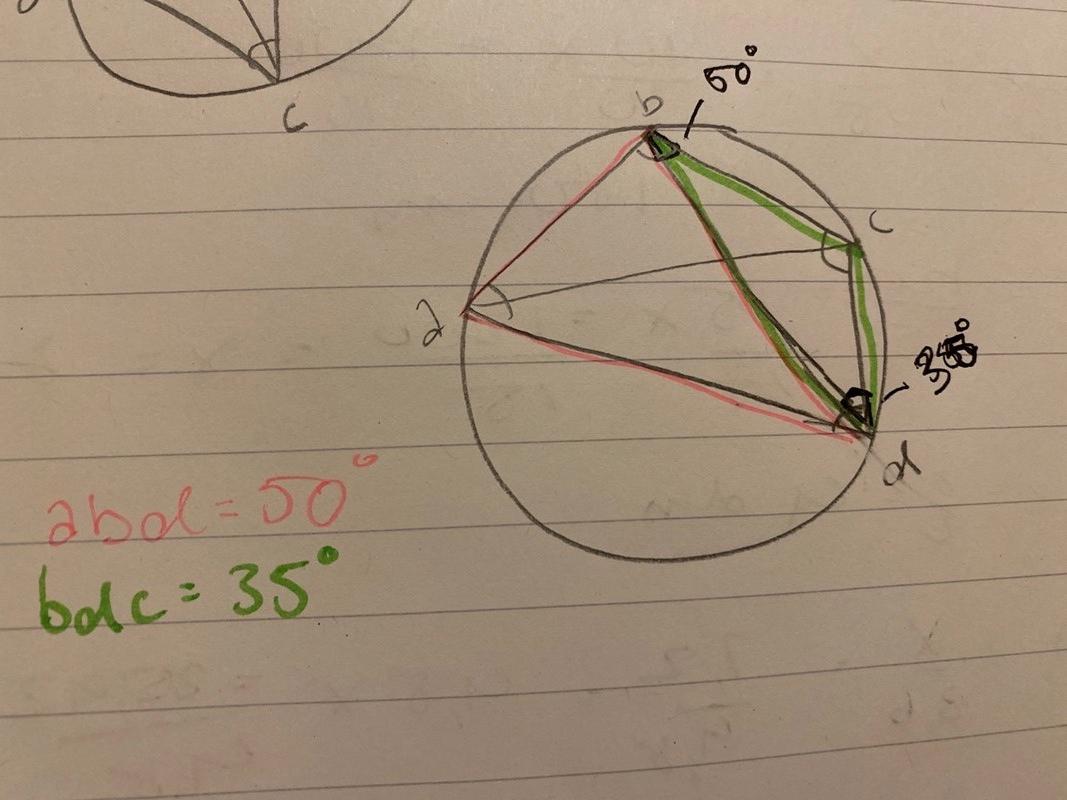 c
50°
b
c
a
35°
d
abd = 50°
bdc = 35°